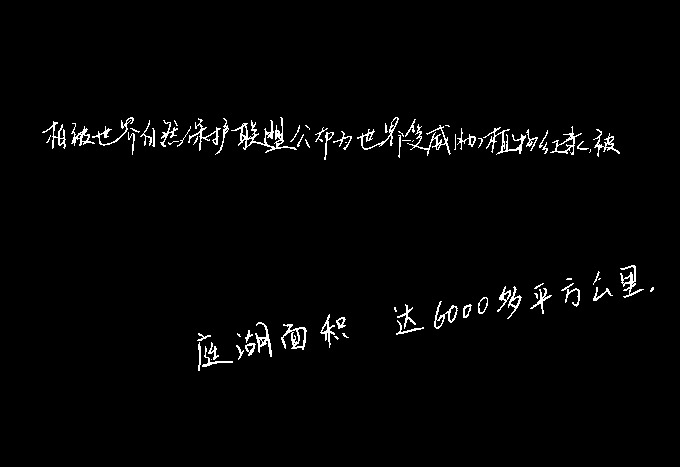 柏被世界自然保护联盟公布为世界受威胁植物红录,被
庭湖面积 达6000多平方公里.